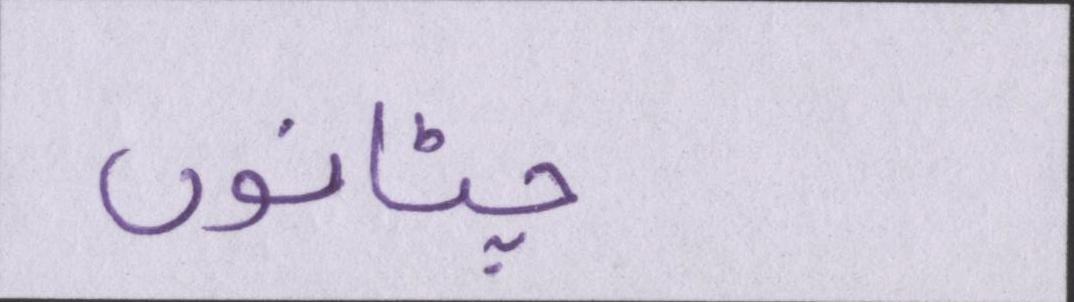 چٹانوں